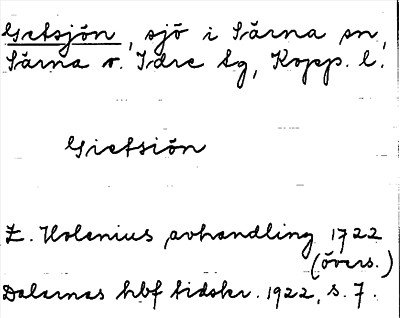 Getsjön, sjö i Särna sn,
Särna o. Idre tg, Kopp. l.
Gietsiön
E. Holenius avhandling 1722
(övers.)
Dalarnas hbf tidskr. 1922, s. 7.